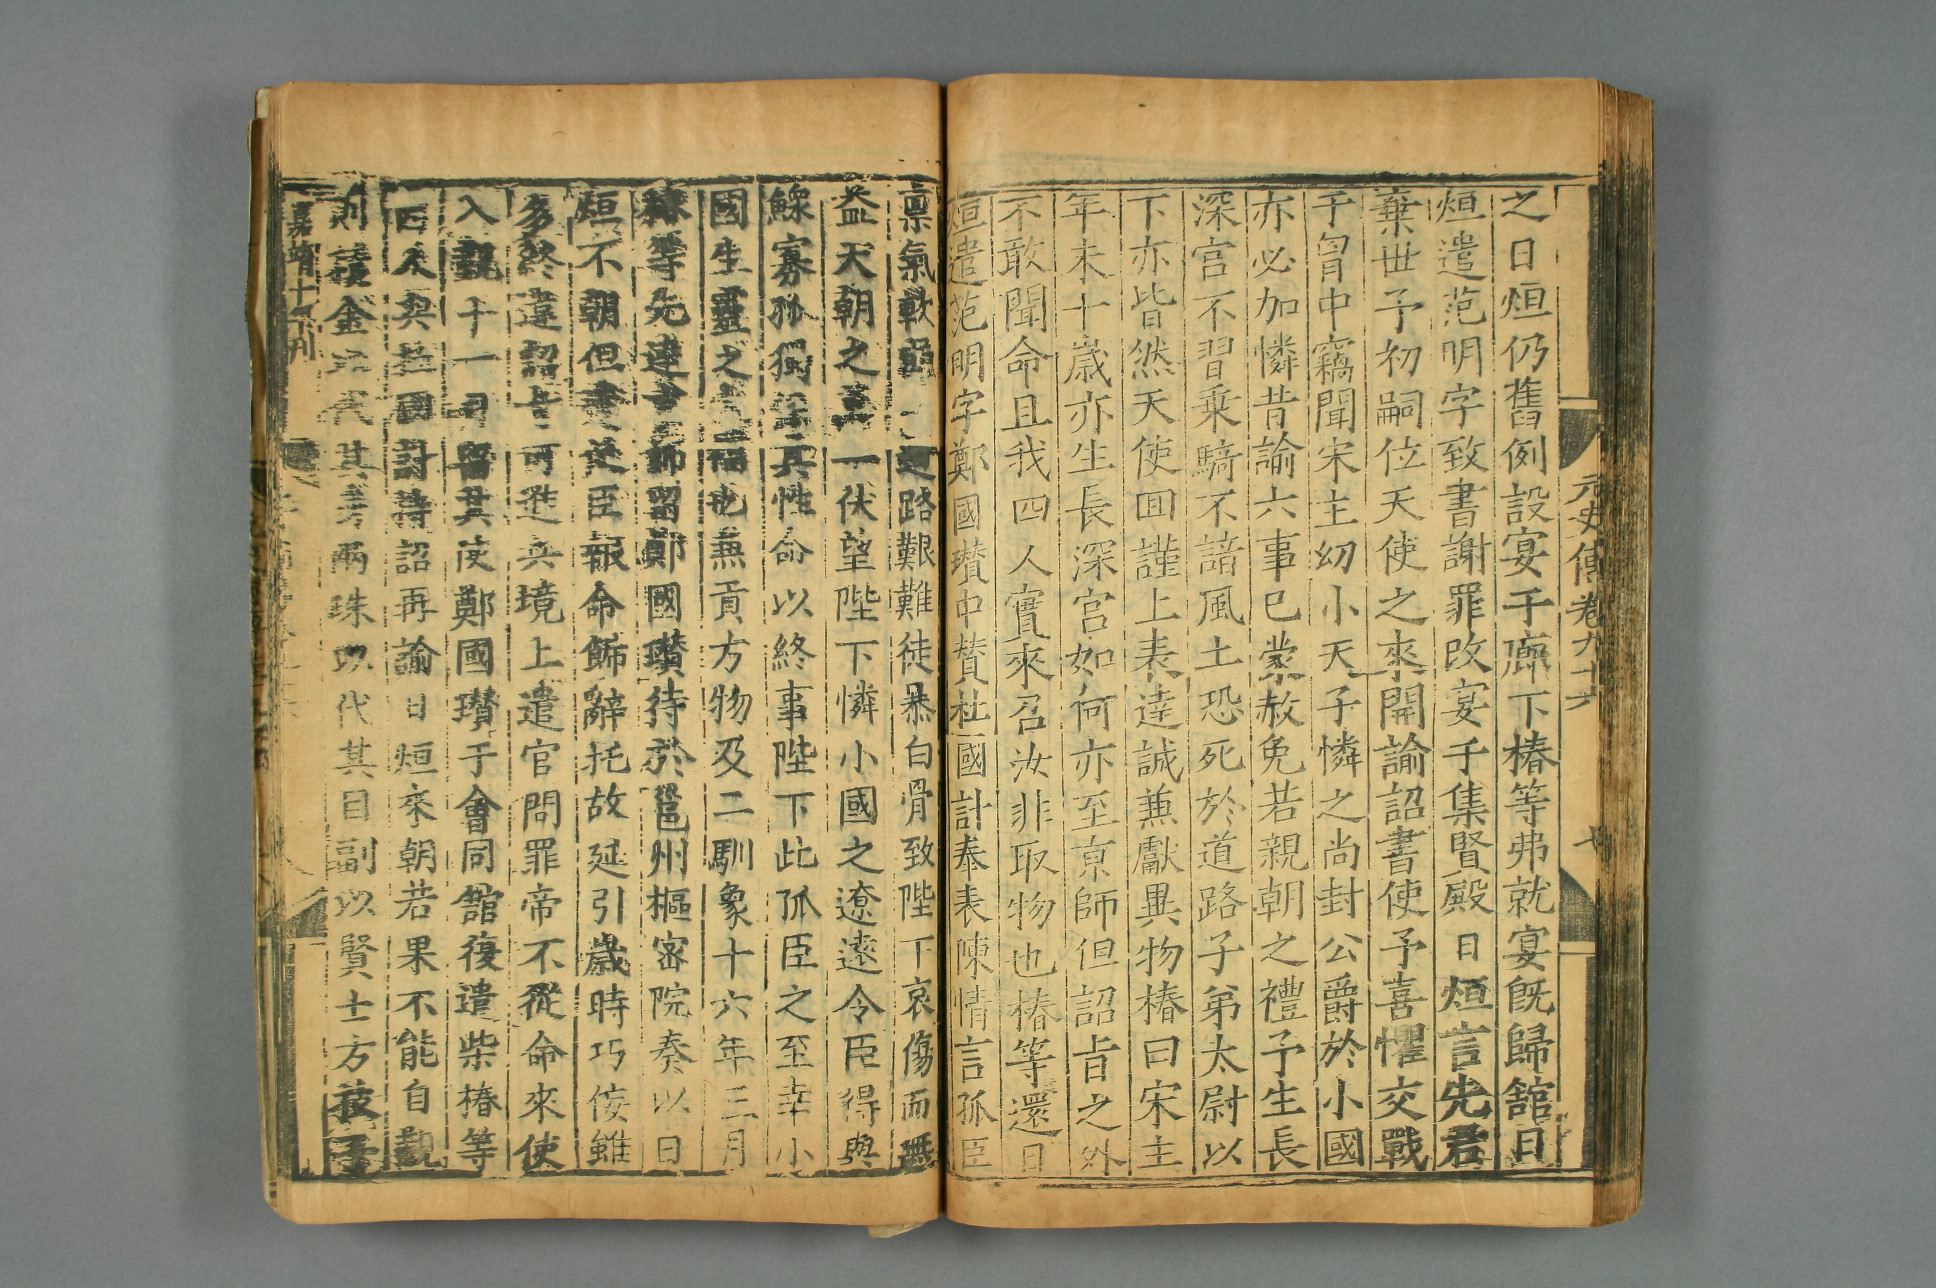 元史傳卷九十六
七
之日烜仍舊例設宴于廡下椿等弗就宴旣歸舘日
烜遣范明字致書謝罪改宴于集賢殿日烜言先君
棄世予初嗣位天使之來開諭詔書使予喜懼交戰
于胷中竊聞宋主幼小天子憐之尚封公爵於小國
亦必加憐昔諭六事已蒙赦免若親朝之禮予生長
深宫不習乗騎不諳風土恐死於道路子弟太尉以
下亦皆然天使囬謹上表逹誠兼獻異物椿曰宋主
年未十歲亦生長深宫如何亦至京師但詔旨之外
不敢聞命且我四人實來召汝非取物也椿等還日
烜遣范明字鄭國瓚中賛杜國計奉表陳情言孤臣
稟氣軟弱 道路艱難徒暴白骨致陛下哀傷而無
益天朝之萬一伏望陛下憐小國之遼逺令臣得與
鰥寡孤獨 其性命以終事陛下此孤臣之至幸小
國生靈之 福也兼貢方物及二馴象十六年三月
椿等先逹 師留鄭國瓚待於邕州樞密院奏以日
烜不朝但遣使臣報命飾辭托故延引歲時巧佞雖
多終違詔旨可進兵境上遣官問罪帝不從命來使
入覲十一月留其使鄭國瓚于會同舘復遣柴椿等
四人與杜國計持詔再諭日烜來朝若果不能自覲
則積金以代其身兩珠以代其目副以賢士方技子
嘉靖十年刊